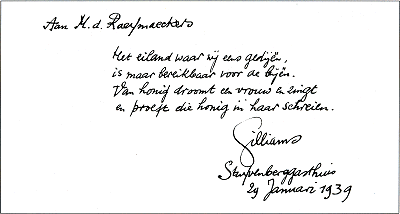 Aan M. d. Raeymaeckers
Het eiland waar wij eens gedijen,
is maar bereikbaar voor de bijen.
Van honig droomt en vrouw en zingt
en proeft die honig in haar schreien.
Gilliams
Stuyvenberggasthuis
29 Januari 1939